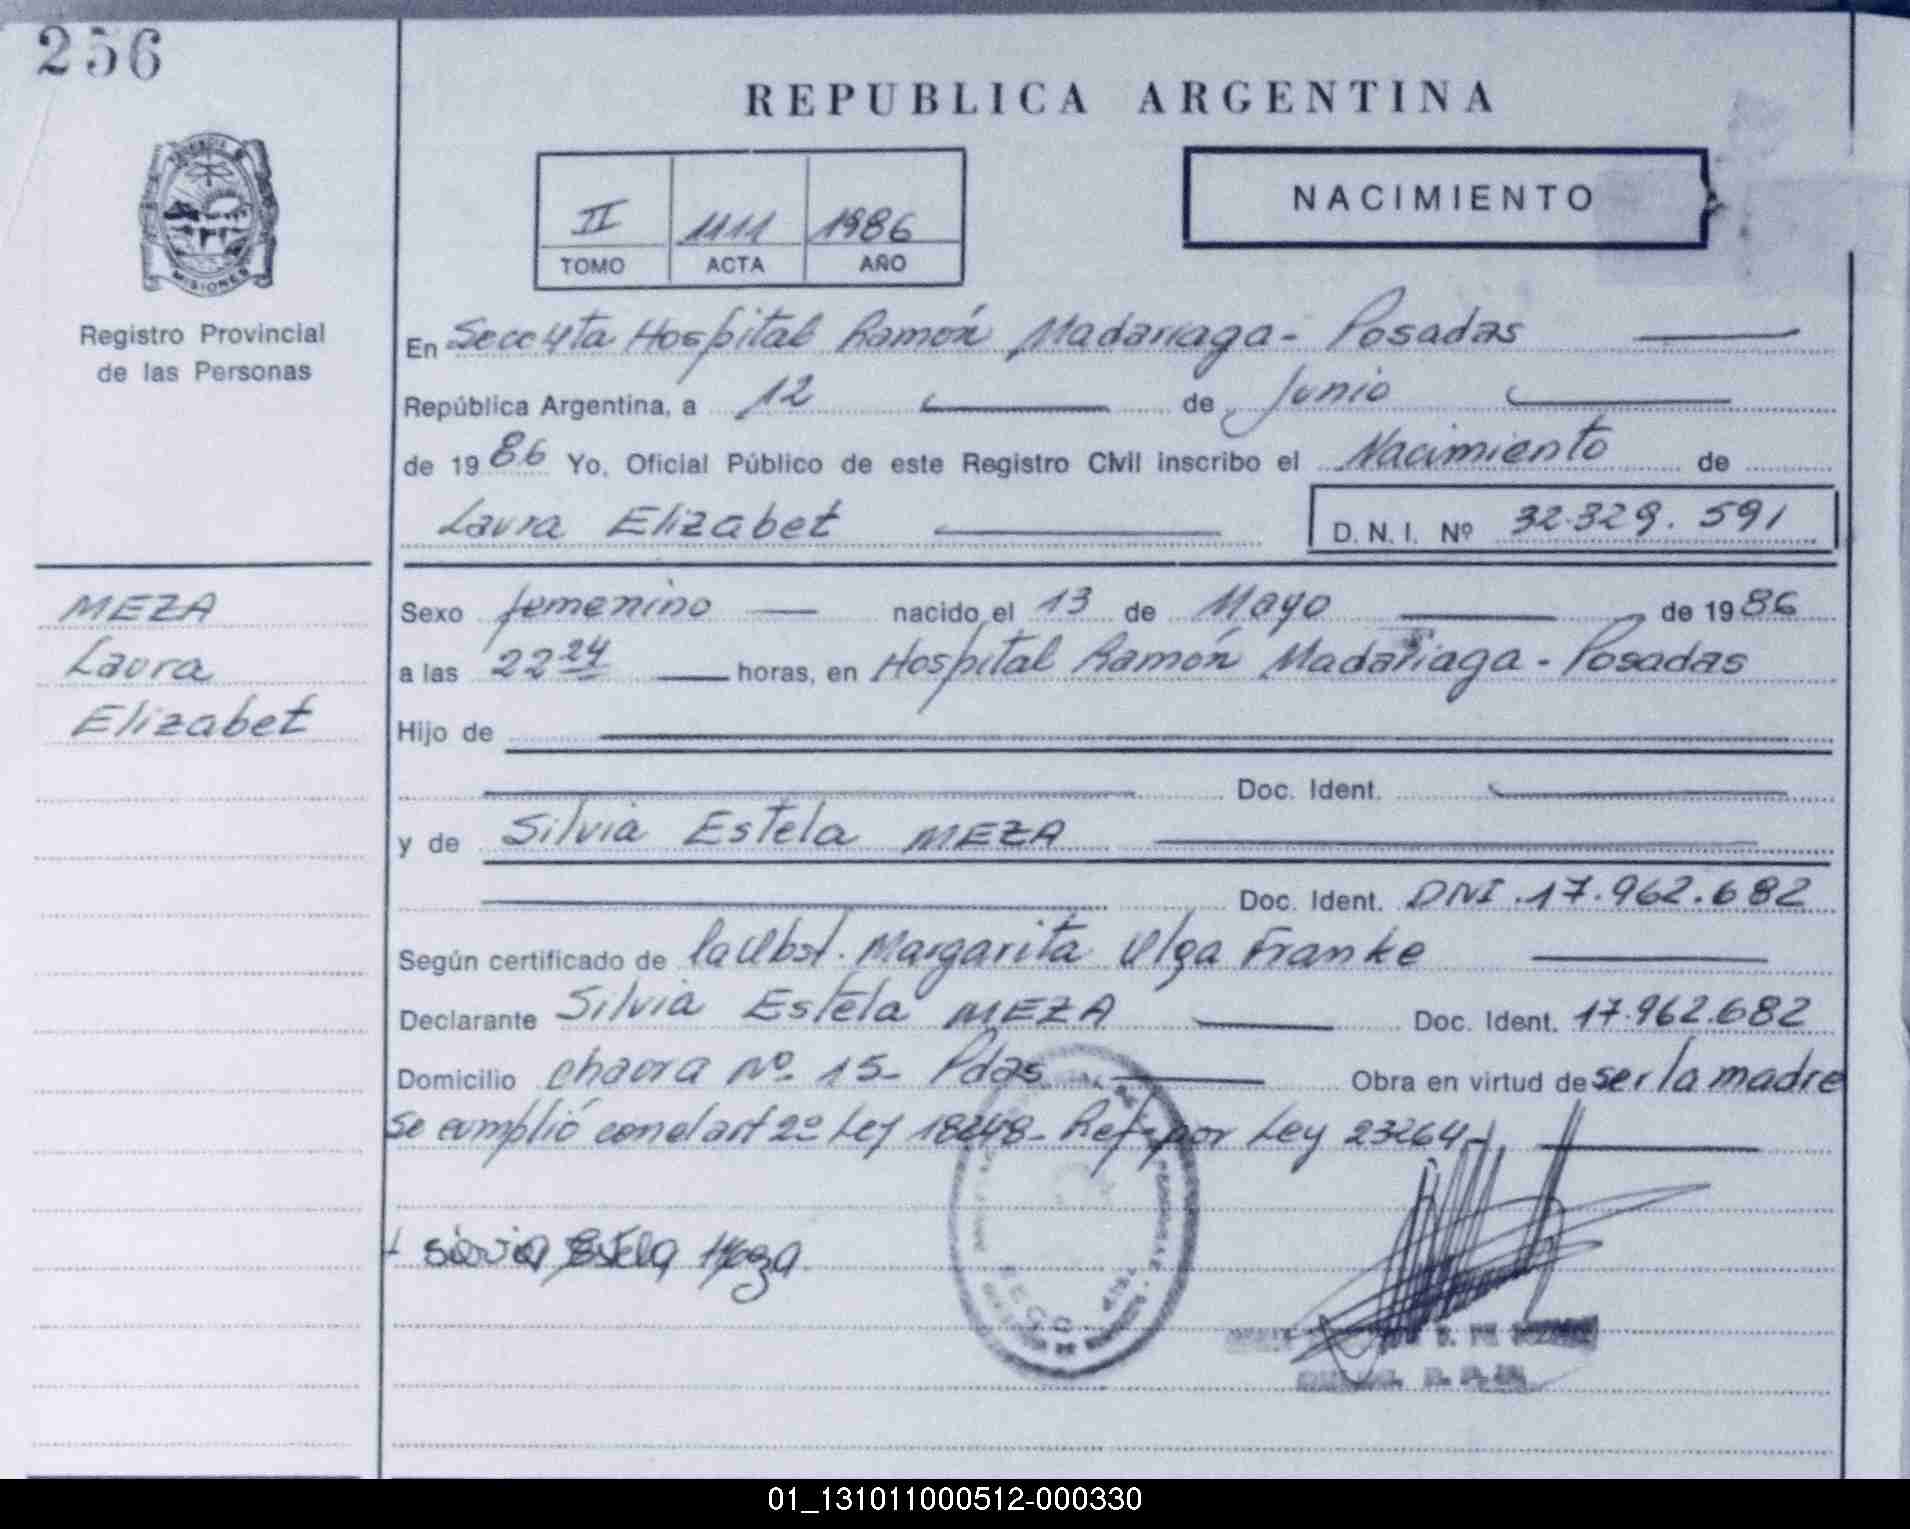 256
REPUBLICA ARGENTINA
MISIONES
Registro Provincial
de las Personas
II 1111 1986
TOMO ACTA AÑO
NACIMIENTO
En Secc 4ta Hospital Ramón Madariaga - Posadas
República Argentina, a 12 de Junio
de 1986 Yo, Oficial Público de este Registro Civil inscribo el Nacimiento de
Laura Elizabet D. N. I. Nº 32.329.591
MEZA
Laura
Elizabet
Sexo femenino nacido el 13 de Mayo de 1986
a las 22 24 horas, en Hospital Ramón Madariaga - Posadas
Hijo de
Doc. Ident.
y de Silvia Estela MEZA
Doc. Ident. DNI. 17.962.682
Según certificado de la Obst. Margarita Olga Franke
Declarante Silvia Estela MEZA Doc. Ident. 17.962.682
Domicilio chacra Nº 15- Pdas Obra en virtud de ser la madre
Se cumplió con el art 2º Ley 18248- Ref- por Ley 23264-
Silvia Estela Meza
01_131011000512-000330